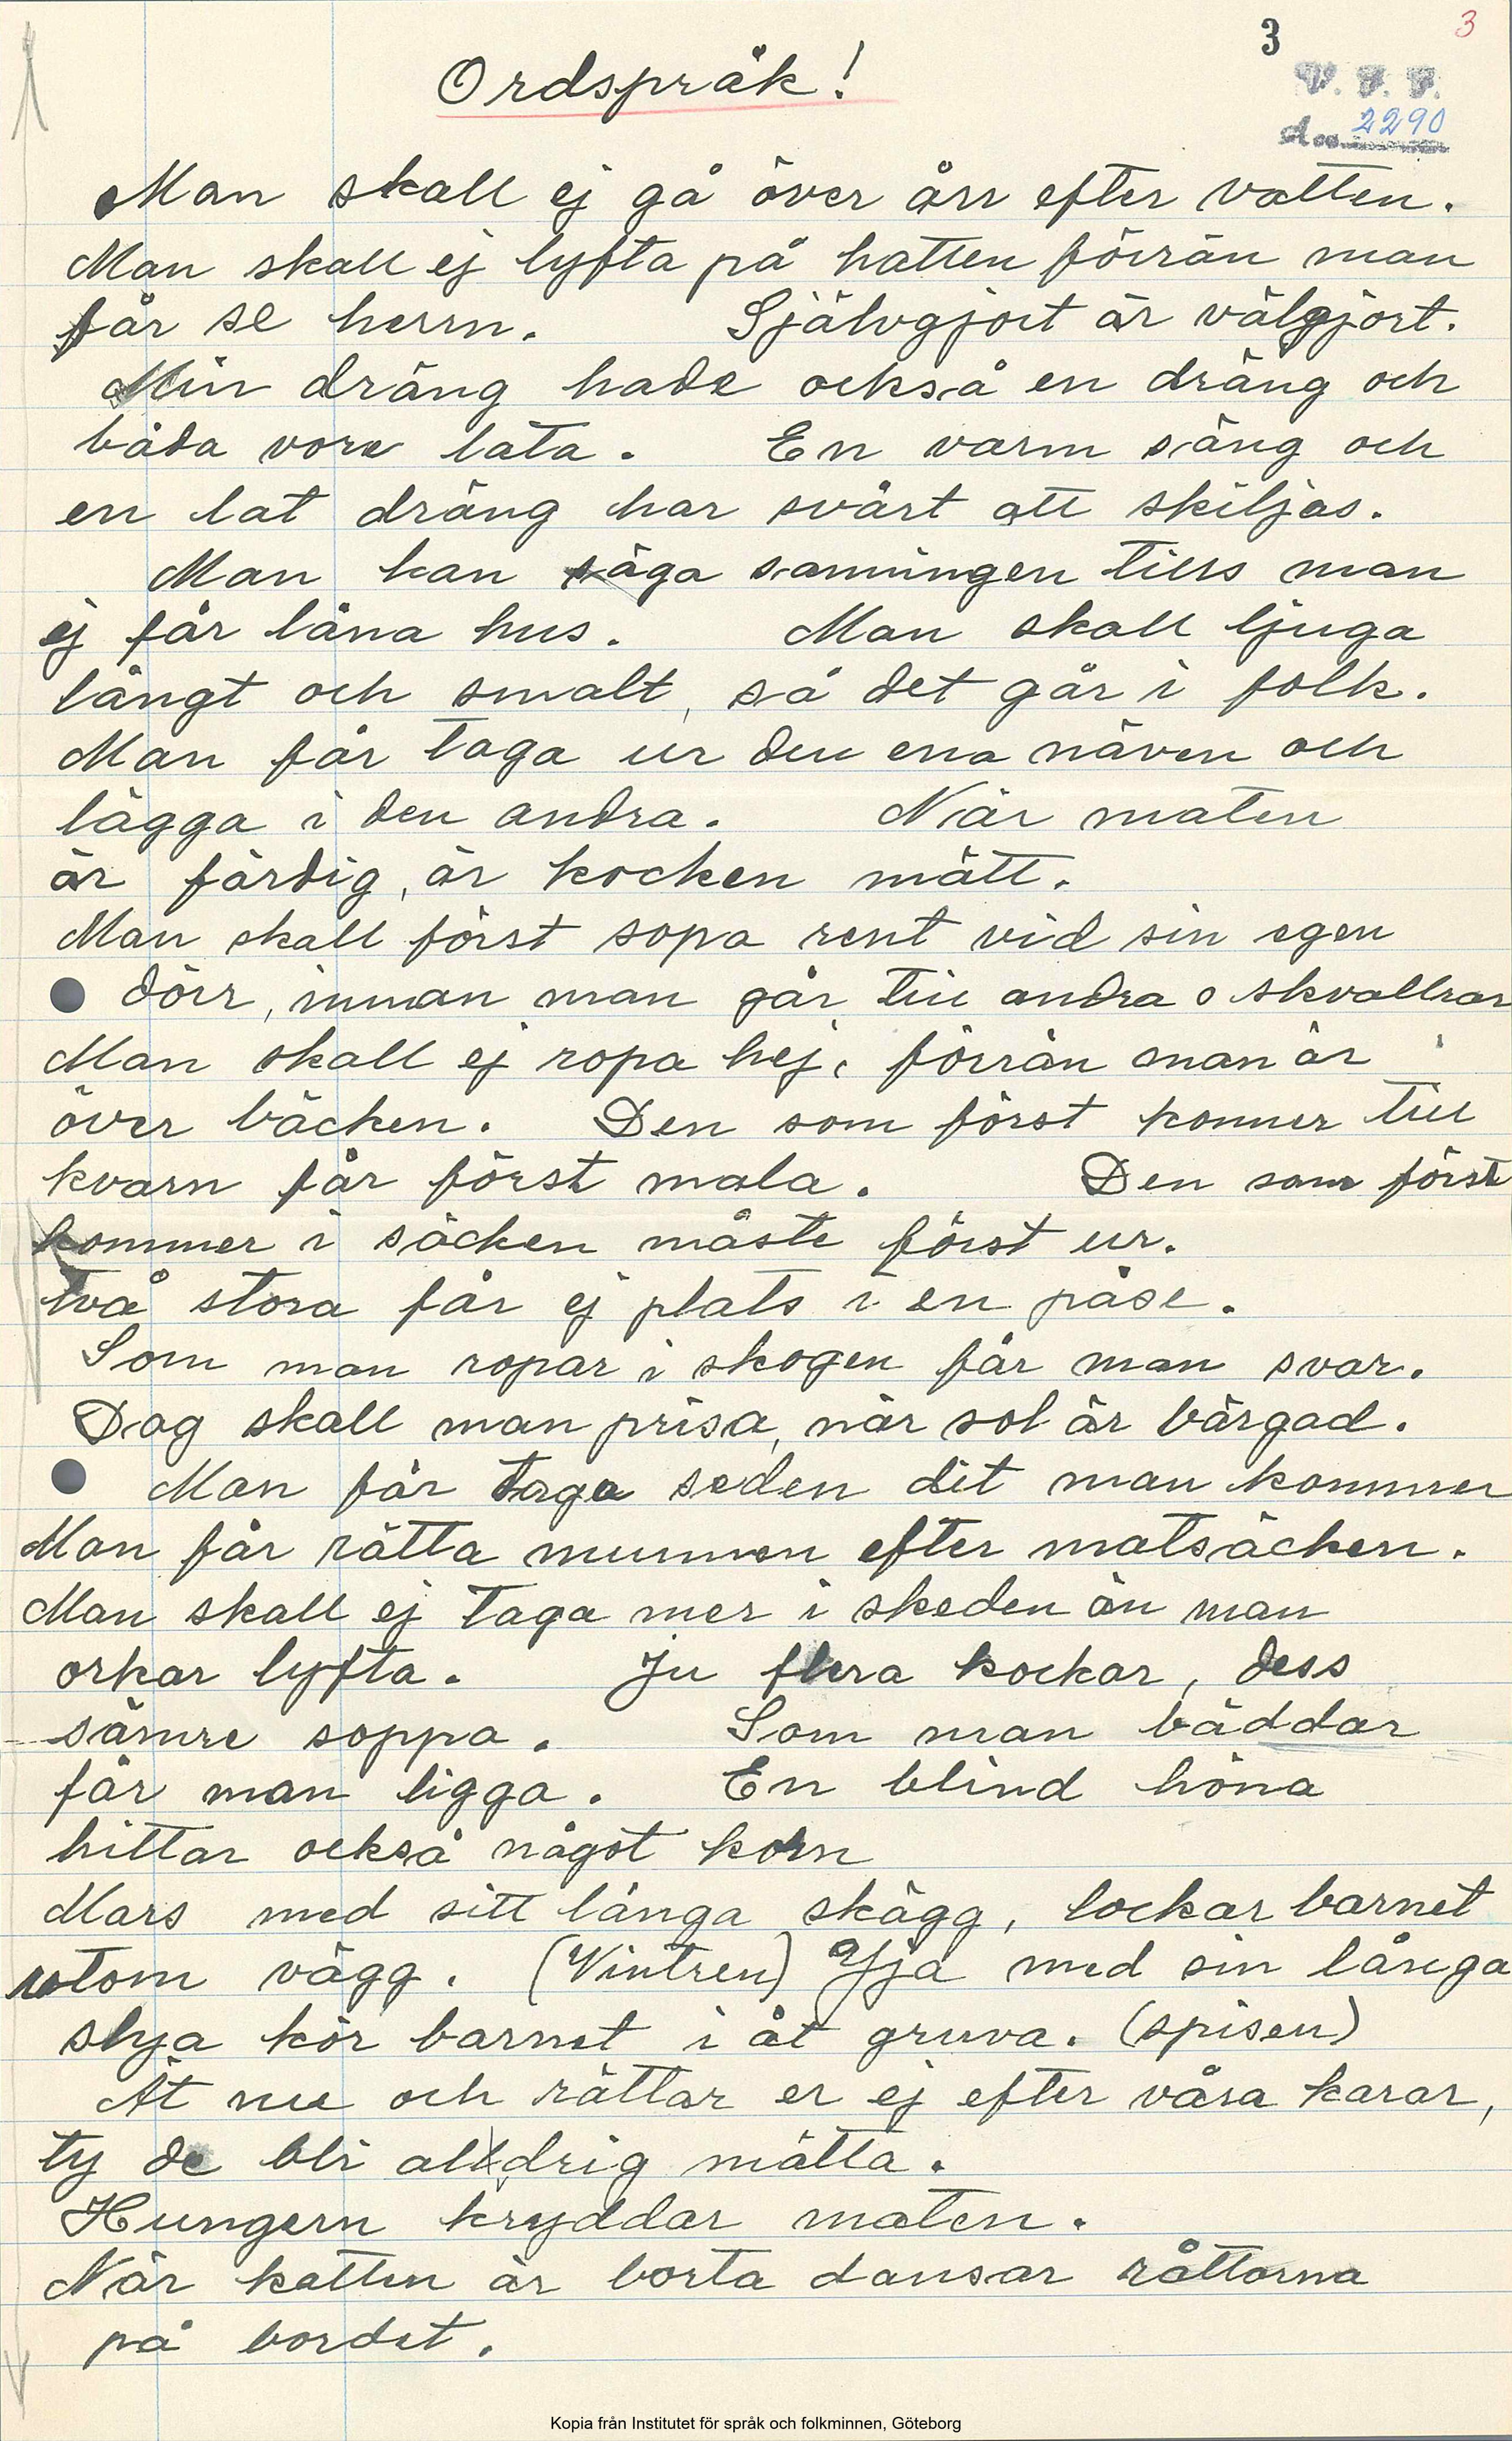 3
3
Ordspråk!
V. F. F.
Acc. 2290
Man skall ej gå över årr efter vatten.
Man skall ej lyfta på hatten förrän man
får se herrn. Självgjort är välgjort.
Min dräng hade också en dräng och
båda vore lata. En varm säng och
en lat dräng har svårt att skiljas.
Man kan säga sanningen tills man
ej får låna hus. Man skall ljuga
långt och smalt, så det går i folk.
Man får taga ur den ena näven och
lägga i den andra. När maten
är färdig, är kocken mätt.
Man skall först sopa rent vid sin egen
dörr, innan man går till andra o skvallrar
Man skall ej ropa hej, förrän man är
över bäcken. Den som först kommer till
kvarn får först mala. Den som först
kommer i säcken måste först ur.
två stora får ej plats i en påse.
Som man ropar i skogen får man svar.
Dag skall man prisa, när sol är bärgad.
Man får taga seden dit man kommer
Man får rätta munnen efter matsäcken.
Man skall ej taga mer i skeden än man
orkar lyfta. Ju flera kockar, dess
sämre soppa. Som man bäddar
får man ligga. En blind höna
hittar också något korn
Mars med sitt långa skägg, lockar barnet
utom vägg. (Vintren) Yja med sin långa
slya kör barnet i åt gruva. (spisen)
Ät nu och rättar er ej efter våra karar,
ty de bli alldrig mätta.
Hungern kryddar maten.
När katten är borta dansar råttorna
på bordet.
Kopia från Institutet för språk och folkminnen, Göteborg